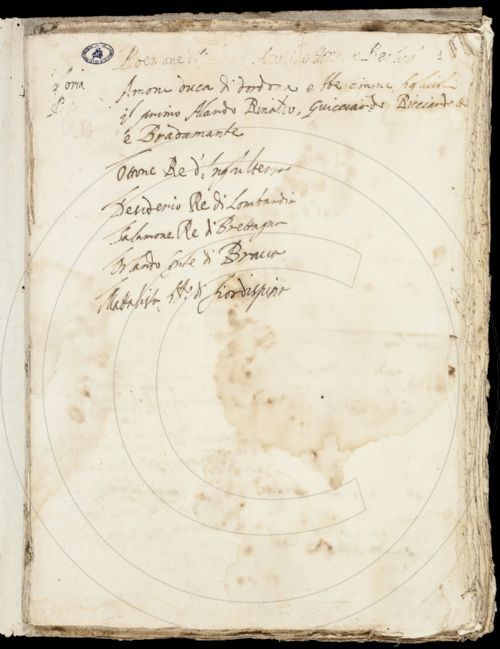 Amone duca di dordona ebbe cinque figliuoli
il primo Alardo Rinaldo, Guicciardo Ricciardetto
e Bradamante
Ottone Re d'Inghilterra
Desiderio Re di Lombardia
Salamone Re di Brettagna
Orlando Conte di Brava
Mattalista di Fiordispina